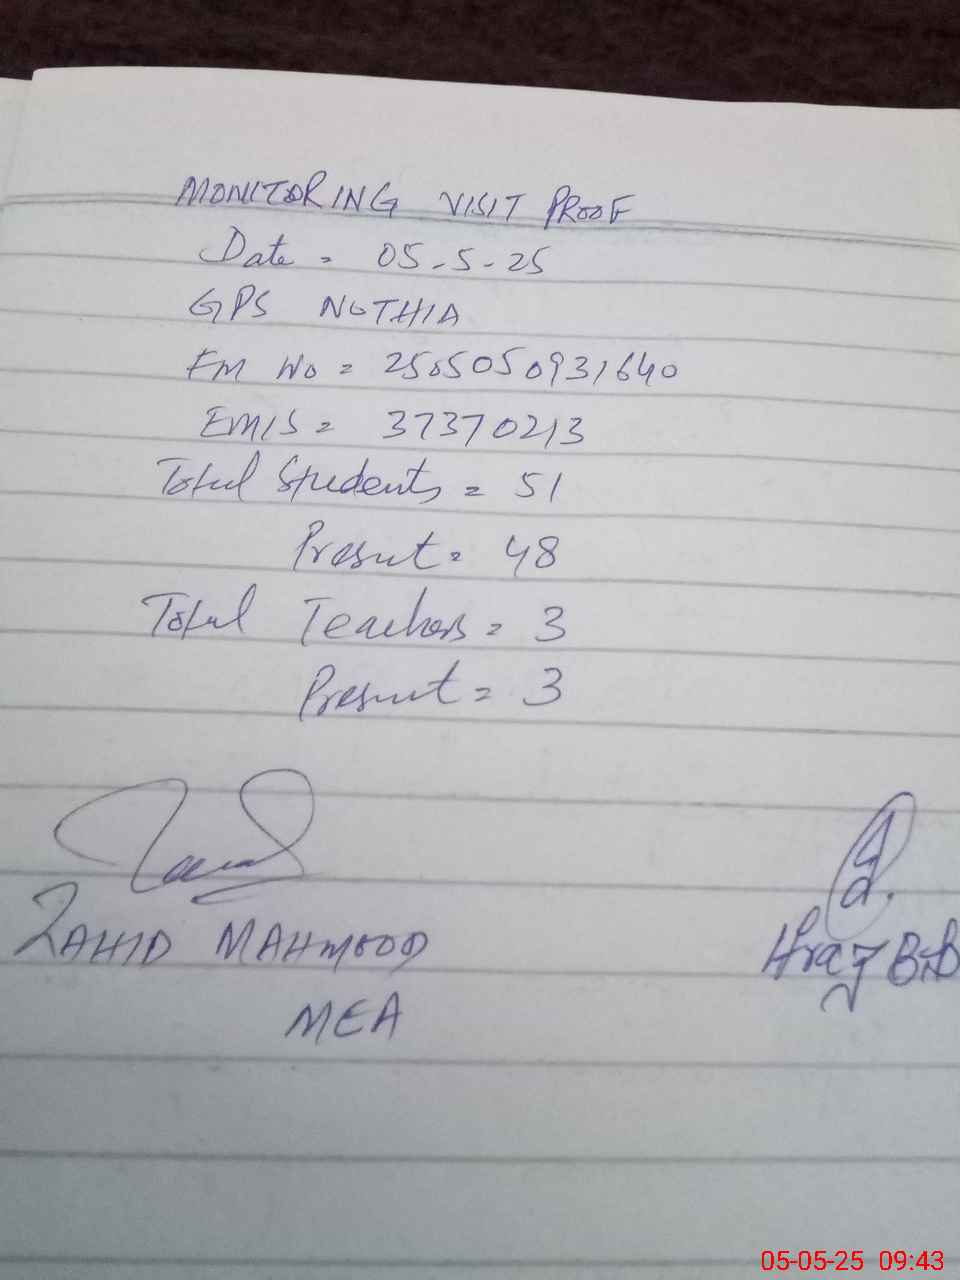 MONITORING VISIT PROOF
Date = 05-5-25
GPS NOTHIA
FM No = 2505050931640
EMIS = 37370213
Total Students = 51
Present = 48
Total Teachers = 3
Present = 3
ZAHID MAHMOOD
MEA
05-05-25 09:43